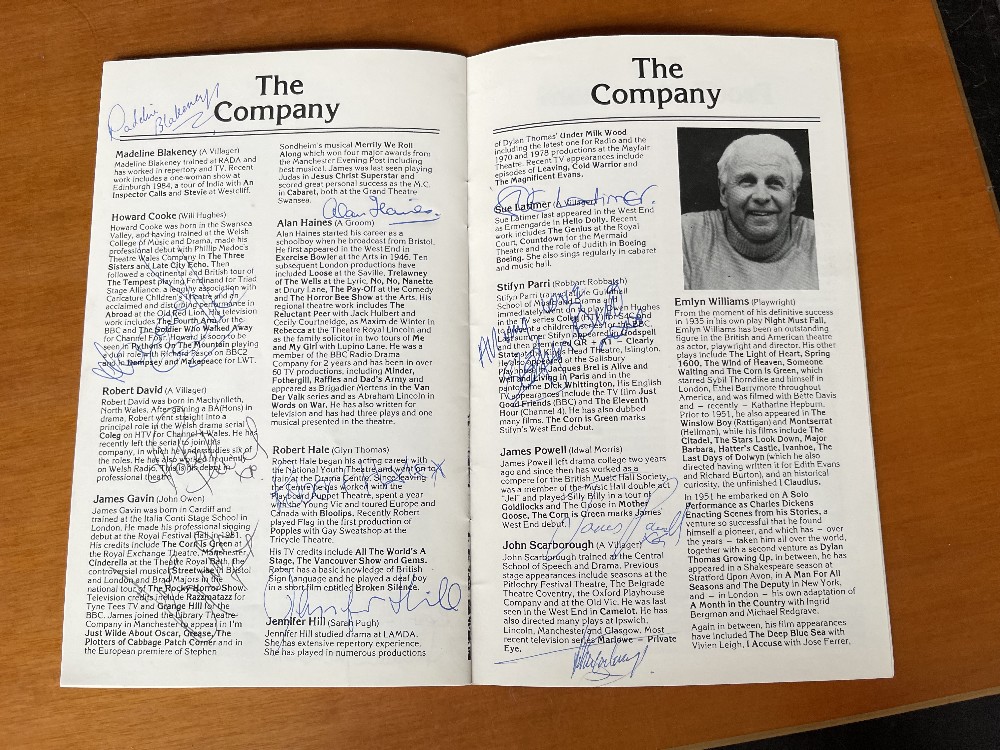 The
Company
Madeline
Blakeney
Madeline Blakeney (A Villager)
Madeline Blakeney trained at RADA and
has worked in repertory and TV. Recent
work includes a one-woman show at
Edinburgh 1984, a tour of India with An
Inspector Calls and Stevie at Westcliff.
Howard Cooke (Will Hughes)
Howard Cooke was born in the Swansea
Valley, and having trained at the Welsh
College of Music and Drama, made his
professional debut with Phillip Madoc's
Theatre Wales Company in The Three
Sisters and Late City Echo. Then
followed a continental and British tour of
The Tempest playing Ferdinand for Triad
Stage Alliance, a lengthy association with
Caricature Children's Theatre and an
acclaimed and disturbing performance in
Abroad at the Old Red Lion. His television
work includes The Fourth Arm, for the
BBC and The Soldier Who Walked Away
for Channel Four. Howard is soon to be
seen in Pythons On The Mountain playing
a dual role with Richard Pasco on BBC2
and in Dempsey and Makepeace for LWT.
Robert David (A Villager)
Robert David was born in Machynlleth,
North Wales. After gaining a BA(Hons) in
drama, Robert went straight into a
principal role in the Welsh drama serial
Coleg on HTV for Channel 4 Wales. He has
recently left the serial to join this
company, in which he understudies six of
the roles. He has also worked frequently
on Welsh Radio. This is his debut in
professional theatre.
James Gavin (John Owen)
James Gavin was born in Cardiff and
trained at the Italia Conti Stage School in
London. He made his professional singing
debut at the Royal Festival Hall in 1981.
His credits include The Corn is Green at
the Royal Exchange Theatre, Manchester,
Cinderella at the Theatre Royal Bath, the
controversial musical Streetwise in Bristol
and London and Brad Majors in the
national tour of The Rocky Horror Show.
Television credits include Razzmatazz for
Tyne Tees TV and Grange Hill for the
BBC. James joined the Library Theatre
Company in Manchester to appear in I'm
Just Wilde About Oscar, Grease, The
Plotters of Cabbage Patch Corner and in
the European premiere of Stephen
Sondheim's musical Merrily We Roll
Along which won four major awards from
the Manchester Evening Post including
best musical. James was last seen playing
Judas in Jesus Christ Superstar and
scored great personal success as the M.C.
in Cabaret, both at the Grand Theatre
Swansea.
Alan Haines.
Alan Haines (A Groom)
Alan Haines started his career as a
schoolboy when he broadcast from Bristol.
He first appeared in the West End in
Exercise Bowler at the Arts in 1946. Ten
subsequent London productions have
included Loose at the Saville, Trelawney
of The Wells at the Lyric, No, No, Nanette
at Drury Lane, The Pay-Off at the Comedy
and The Horror Bee Show at the Arts. His
regional theatre work includes The
Reluctant Peer with Jack Hulbert and
Cecily Courtneidge, as Maxim de Winter in
Rebecca at the Theatre Royal Lincoln and
as the family solicitor in two tours of Me
and My Girl with Lupino Lane. He was a
member of the BBC Radio Drama
Company for 2 years and has been in over
60 TV productions, including Minder,
Fothergill, Raffles and Dad's Army and
appeared as Brigadier Mertens in the Van
Der Valk series and as Abraham Lincoln in
Words on War. He has also written for
television and has had three plays and one
musical presented in the theatre.
Robert Hale (Glyn Thomas)
Robert Hale began his acting career with
the National Youth Theatre and went on to
train at the Drama Centre. Since leaving
the Centre he has worked with the
Playboard Puppet Theatre, spent a year
with the Young Vic and toured Europe and
Canada with Bloolips. Recently Robert
played Flag in the first production of
Popples with Gay Sweatshop at the
Tricycle Theatre.
His TV credits include All The World's A
Stage, The Vancouver Show and Gems.
Robert has a basic knowledge of British
Sign Language and he played a deaf boy
in a short film entitled Broken Silence.
Jennifer Hill
Jennifer Hill (Sarah Pugh)
Jennifer Hill studied drama at LAMDA.
She has extensive repertory experience.
She has played in numerous productions
The
Company
of Dylan Thomas' Under Milk Wood
including the latest one for Radio and the
1970 and 1978 productions at the Mayfair
Theatre. Recent TV appearances include
episodes of Leaving, Cold Warrior and
The Magnificent Evans.
Sue Latimer.
Sue Latimer (A Villager)
Sue Latimer last appeared in the West End
as Ermengarde in Hello Dolly. Recent
work includes The Genius at the Royal
Court, Countdown for the Mermaid
Theatre and the role of Judith in Boeing
Boeing. She also sings regularly in cabaret
and music hall.
Stifyn Parri (Robbart Robbatch)
Stifyn Parri trained at the Guildhall
School of Music and Drama and
immediately went on to play Owen Hughes
in the TV series Coleg (HTV/S4C) and
a children's series for the BBC.
Last summer Stifyn appeared in Godspell
and then premiered QR + A1 – Clearly
State at the Kings Head Theatre, Islington.
He also appeared at the Salisbury
Playhouse in Jacques Brel is Alive and
Well and Living in Paris and in the
pantomime Dick Whittington. His English
TV appearances include the TV film Just
Good Friends (BBC) and The Eleventh
Hour (Channel 4). He has also dubbed
many films. The Corn is Green marks
Stifyn's West End debut.
James Powell (Idwal Morris)
James Powell left drama college two years
ago and since then has worked as a
compere for the British Music Hall Society,
was a member of the Music Hall double act
"Jel" and played Silly Billy in a tour of
Goldilocks and The Goose in Mother
Goose, The Corn is Green marks James'
West End debut.
James Powell
John Scarborough (A Villager)
John Scarborough trained at the Central
School of Speech and Drama. Previous
stage appearances include seasons at the
Pitlochry Festival Theatre, The Belgrade
Theatre Coventry, the Oxford Playhouse
Company and at the Old Vic. He was last
seen in the West End in Camelot. He has
also directed many plays at Ipswich,
Lincoln, Manchester and Glasgow. Most
recent television series Marlowe – Private
Eye.
Emlyn Williams (Playwright)
From the moment of his definitive success
in 1935 in his own play Night Must Fall,
Emlyn Williams has been an outstanding
figure in the British and American theatre
as actor, playwright and director. His other
plays include The Light of Heart, Spring
1600, The Wind of Heaven, Someone
Waiting and The Corn is Green, which
starred Sybil Thorndike and himself in
London, Ethel Barrymore throughout
America, and was filmed with Bette Davis
and – recently – Katharine Hepburn.
Prior to 1951, he also appeared in The
Winslow Boy (Rattigan) and Montserrat
(Hellman), while his films include The
Citadel, The Stars Look Down, Major
Barbara, Hatter's Castle, Ivanhoe, The
Last Days of Dolwyn (which he also
directed having written it for Edith Evans
and Richard Burton), and an historical
curiosity, the unfinished I Claudius.
In 1951 he embarked on A Solo
Performance as Charles Dickens
Enacting Scenes from his Stories, a
venture so successful that he found
himself a pioneer, and which has – over
the years – taken him all over the world,
together with a second venture as Dylan
Thomas Growing Up, in between, he has
appeared in a Shakespeare season at
Stratford Upon Avon, in A Man For All
Seasons and The Deputy in New York,
and – in London – his own adaptation of
A Month in the Country with Ingrid
Bergman and Michael Redgrave.
Again in between, his film appearances
have included The Deep Blue Sea with
Vivien Leigh, I Accuse with Jose Ferrer,